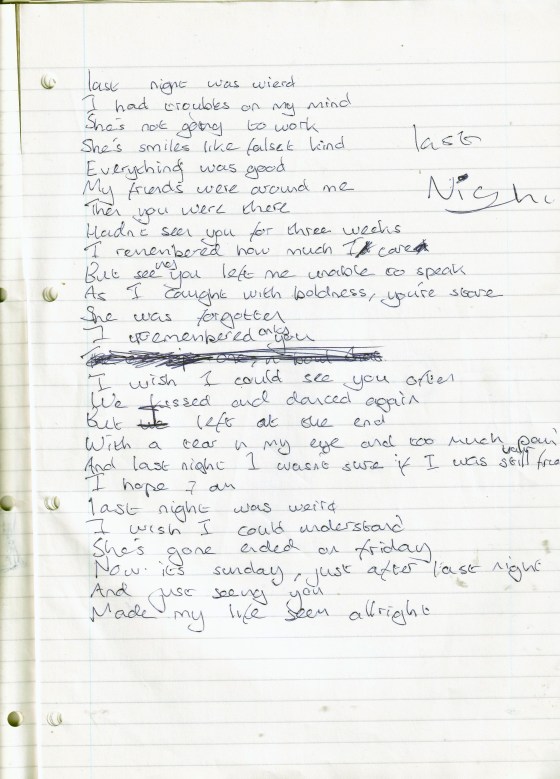 last night was wierd
I had troubles on my mind
She's not going to work
She's smiles like falset kind
last
Everything was good
My friends were around me
Nigh
Then you were there
Hadn't seen you for three weeks
I remembered how much I care
But seeing you left me unable to speak
As I caught with boldness, you're stare
She was forgotten
I remembered only you
I wish I could see you often
We kissed and danced again
But left at the end
With a tear in my eye and too much pain
And last night I wasn't sure if I was your still
I hope I am
last night was weird
I wish I could understand
She's gone ended on friday
Now it's sunday, just after last night
And just seeing you
Made my life seem allright